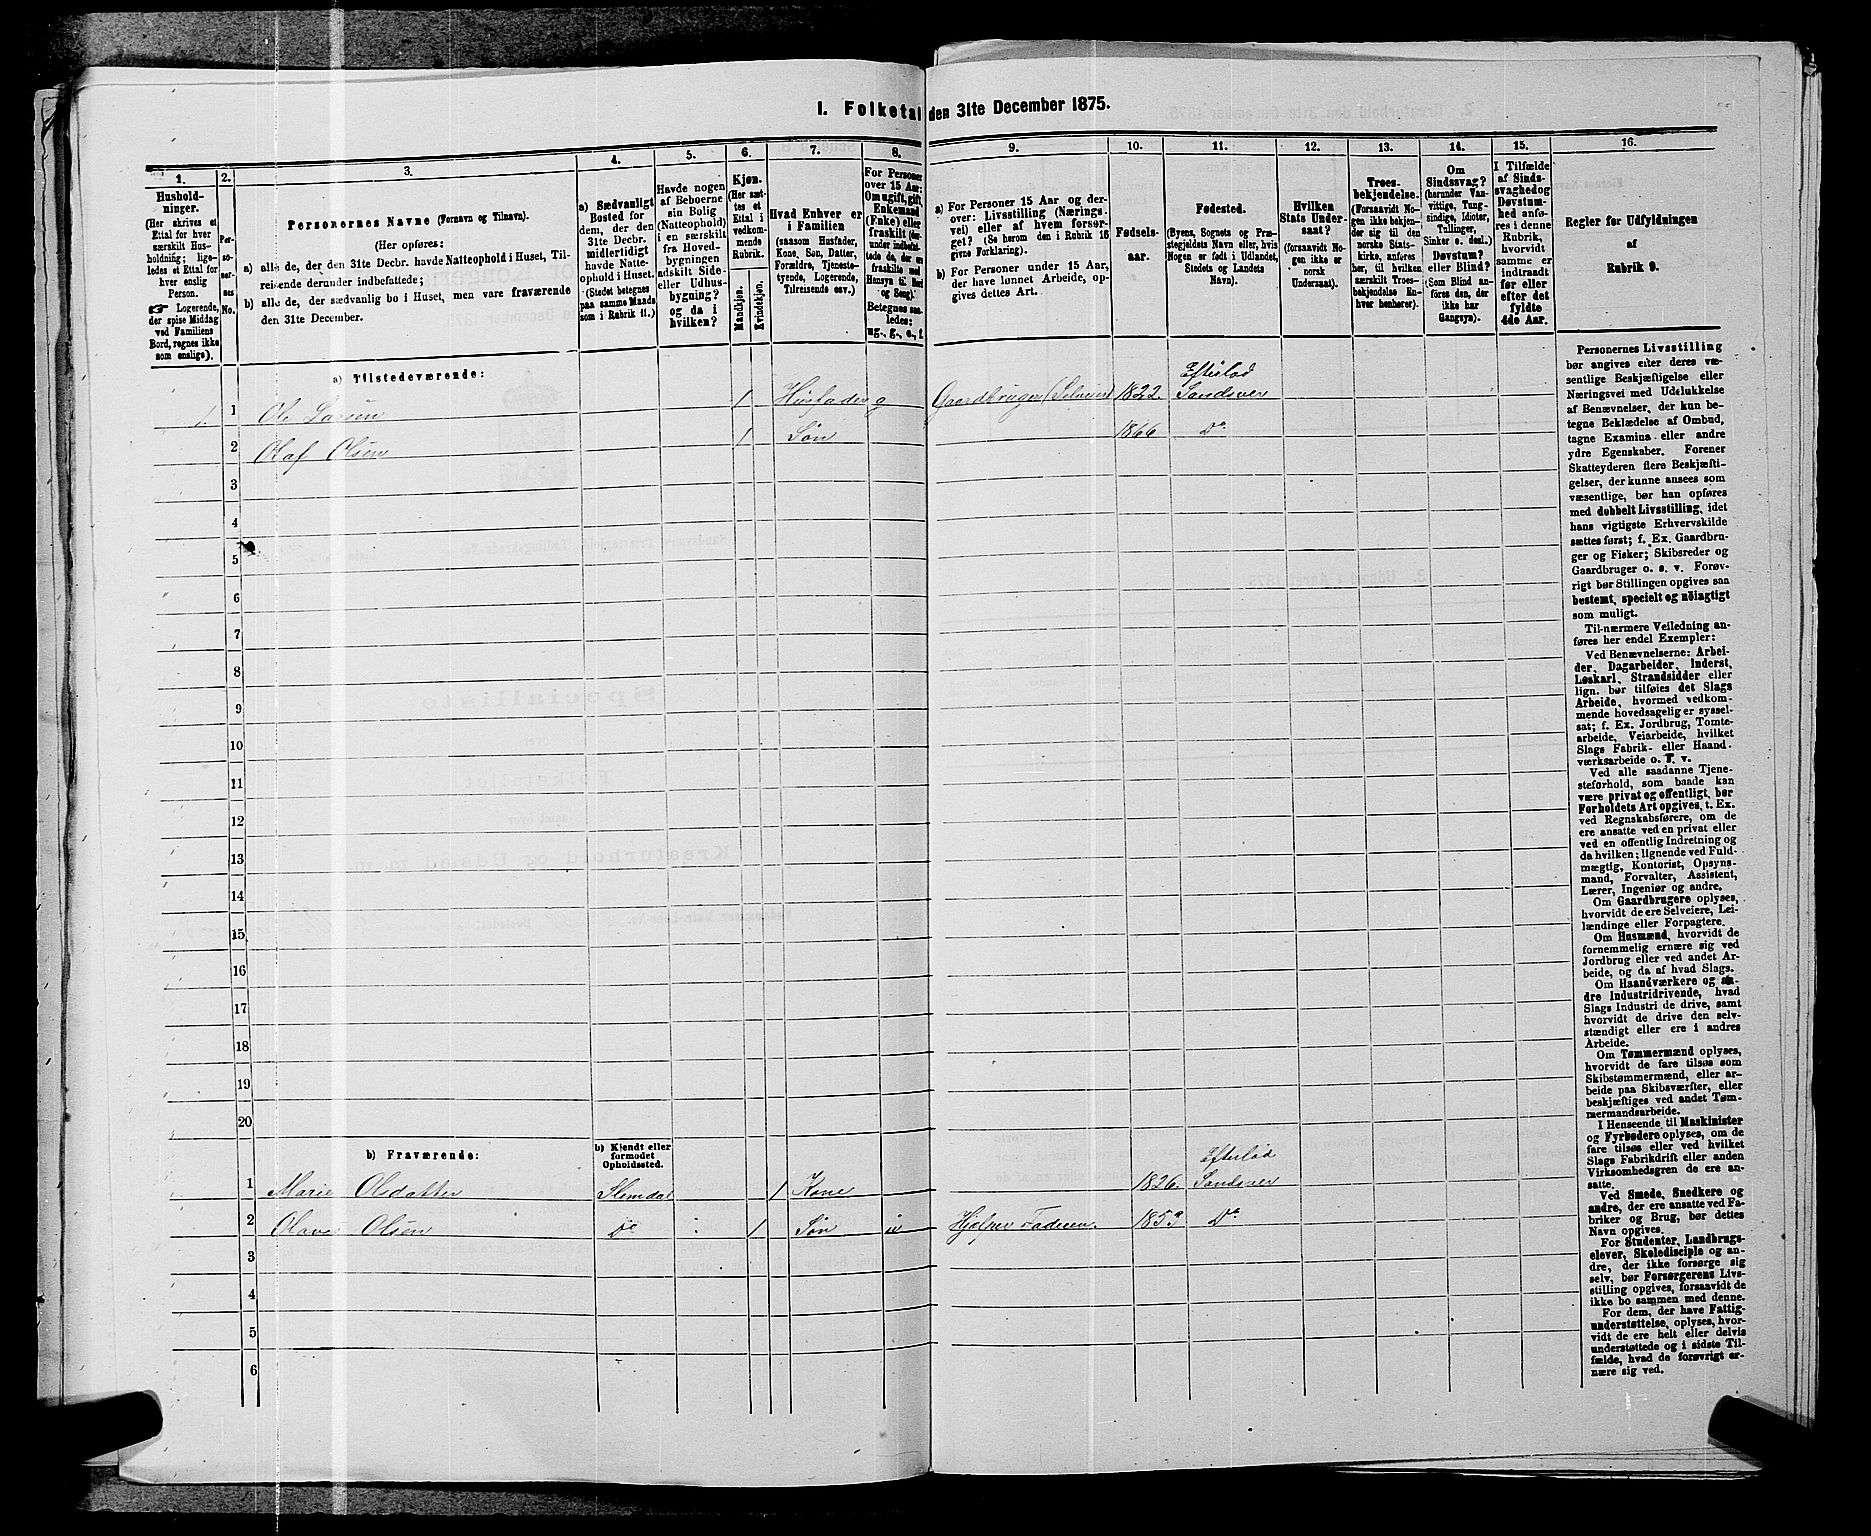 I. Folketal den 31te December 1875.
1.
Hushold-
ninger.
(Her skrives et
Ettal for hver
særskilt Hus-
holdning; lige-
ledes et Ettal for
hver enslig
Person.
☞ Logerende,
der spise Middag
ved Familiens
Bord, regnes ikke
som enslige).
2.
Per-
so-
ner-
nes
No.
3.
Personernes Navne (Fornavn og Tilnavn).
(Her opføres:
a) alle de, der den 31te Decbr. havde Natteophold i Huset, Til-
reisende derunder indbefattede;
b) alle de, der sædvanlig bo i Huset, men vare fraværende
den 31te December.
4.
a) Sædvanligt
Bosted for
dem, der den
31te Decbr.
midlertidigt
havde Natte-
ophold i Huset.
(Stedet betegnes
paa samme Maade
som i Rubrik 11.)
5.
Havde nogen
af Beboerne
sin Bolig
(Natteophold)
i en særskilt
fra Hoved-
bygningen
adskilt Side-
eller Udhus-
bygning?
og da i
hvilken?
6.
Kjøn.
(Her sæt-
tes et
Ettal i
vedkom-
mende
Rubrik.
Mandkjøn.
Kvindekjøn.
7.
Hvad Enhver er
i Familien
(saasom Husfader,
Kone, Søn, Datter,
Forældre, Tjeneste-
tyende, Logerende,
Tilreisende osv.)
8.
For Personer
over 15 Aar:
Om ugift, gift,
Enkemand
(Enke) eller
fraskilt (her-
under indbefat-
tede de, der ere
fraskilte med
Hensyn til Bord
og Seng).
Betegnes saa-
ledes:
ug., g., e., f.
9.
a) For Personer 15 Aar og der-
over: Livsstilling (Nærings-
vei) eller af hvem forsør-
get? (Se herom den i Rubrik 16
givne Forklaring).
b) For Personer under 15 Aar,
der have lønnet Arbeide, op-
gives dettes Art.
10.
Fødsels-
aar.
11.
Fødested.
(Byens, Sognets og Præ-
stegjeldets Navn eller, hvis
Nogen er født i Udlandet,
Stedets og Landets
Navn).
12.
Hvilken
Stats Under-
saat?
(forsaavidt No-
gen ikke er
norsk
Undersaat).
13.
Troes-
bekjendelse.
(Forsaavidt No-
gen ikke bekjen-
der sig til den
norske Stats-
kirke, anføres
her, til hvilken
særskilt Troes-
bekjendelse En-
hver henhører).
14.
Om
Sindssvag?
(herunder Van-
vittige, Tung-
sindige, Idioter,
Tullinger,
Sinker o. desl.)
Døvstum?
eller Blind?
(Som Blind an-
føres den, der
ikke har
Gangsyn).
15.
I Tilfælde
af Sinds-
svaghed og
Døvstum-
hed anfø-
res i denne
Rubrik,
hvorvidt
samme er
indtraadt
før eller
efter det
fyldte
4de Aar.
16.
Regler for Udfyldningen
af
Rubrik 9.
a) Tilstedeværende:
1. 1 Ole Larsen 1 Husfader g Gaardbruger (Selveier) 1822 Eftelød Sandsver
2 Olaf Olsen 1 Søn 1866 Do
3
4
5
6
7
8
9
10
11
12
13
14
15
16
17
18
19
20
b) Fraværende:
b) Kjendt eller
formodet
Opholdssted.
1 Marie Olsdatter Slemdal 1 Kone 1826 Eftelød Sandsver
2 Olava Olsen Do 1 Søn Hjelper Faderen 1853 Do
3
4
5
6
Personernes Livsstilling
bør angives efter deres væ-
sentlige Beskjæftigelse eller
Næringsvei med Udelukkelse
af Benævnelser, der kun be-
tegne Beklædelse af Ombud,
tagne Examina eller andre
ydre Egenskaber. Forener
Skatteyderen flere Beskjæfti-
gelser, der kunne ansees som
væsentlige, bør han opføres
med dobbelt Livsstilling, idet
hans vigtigste Erhvervskilde
sættes først; f. Ex. Gaardbru-
ger og Fisker; Skibsreder og
Gaardbruger o. s. v. Forøv-
rigt bør Stillingen opgives saa
bestemt, specielt og nöiagtigt
som muligt.
Til nærmere Veiledning an-
føres her endel Exempler:
Ved Benævnelserne: Arbei-
der, Dagarbeider, Inderst,
Løskarl, Strandsidder eller
lign. bør tilføies det Slags
Arbeide, hvormed vedkom-
mende hovedsagelig er syssel-
sat; f. Ex. Jordbrug, Tomte-
arbeide, Veiarbeide, hvilket
Slags Fabrik- eller Haand-
værksarbeide o. s. v.
Ved alle saadanne Tjene-
steforhold, som baade kan
være privat og offentligt, bør
Forholdets Art opgives, t. Ex.
ved Regnskabsførere, om de
ere ansatte ved en privat eller
ved en offentlig Indretning og
da hvilken; lignende ved Fuld-
mægtig, Kontorist, Opsyns-
mand, Forvalter, Assistent,
Lærer, Ingeniør og andre.
Om Gaardbrugere oplyses,
hvorvidt de ere Selveiere, Lei-
lændinge eller Forpagtere.
Om Husmænd, hvorvidt de
fornemmelig ernære sig ved
Jordbrug eller ved andet Ar-
beide, og da af hvad Slags.
Om Haandværkere og an-
dre Industridrivende, hvad
Slags Industri de drive, samt
hvorvidt de drive den selv-
stændigt eller ere i andres
Arbeide.
Om Tømmermænd oplyses,
hvorvidt de fare tilsøs som
Skibstømmermænd, eller ar-
beide paa Skibsværfter, eller
beskjæftiges ved andet Tøm-
mermandsarbeide.
I Henseende til Maskinister
og Fyrbødere oplyses, om de
fare tilsøs eller ved hvilket
Slags Fabrikdrift eller anden
Virksomhedsgren de ere an-
satte.
Ved Smede, Snedkere og
andre, der ere ansatte ved Fa-
briker og Brug, bør dettes
Navn opgives.
For Studenter, Landbrugs-
elever, Skoledisciple og an-
dre, der ikke forsørge sig
selv, bør Forsørgerens Livs-
stilling opgives, forsaavidt de
ikke bo sammen med denne.
For dem, der have Fattig-
understøttelse, oplyses, hvor-
vidt de ere helt eller delvis
understøttede og i sidste Til-
fælde, hvad de forøvrigt er-
nære sig ved.